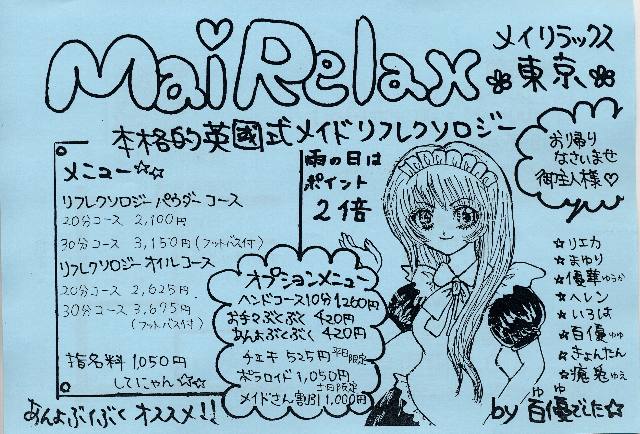 Mai Relax
メイリラックス
東京
本格的英國式メイドリフレクソロジー
お帰り
なさいませ
御主人様♡
雨の日は
ポイント
2倍
メニュー☆☆
リフレクソロジーパウダーコース
20分コース 2,100円
30分コース 3,150円(フットバス付)
リフレクソロジーオイルコース
20分コース 2,625円
30分コース 3,675円
(フットバス付)
指名料 1,050円
してにゃん☆☆
オプションメニュー
ハンドコース10分1260円
お手々ぶくぶく 420円
あんよぶくぶく 420円
チェキ 525円 平日限定
ポラロイド 1,050円
土日限定
メイドさん割引 1,000円
☆リエカ
☆まゆり
☆優華ゆうか
☆ヘレン
☆いろは
☆百優ゆゆ
☆きょんたん
あんよぶくぶく オススメ!!
by 百優でした☆
ゆゆ